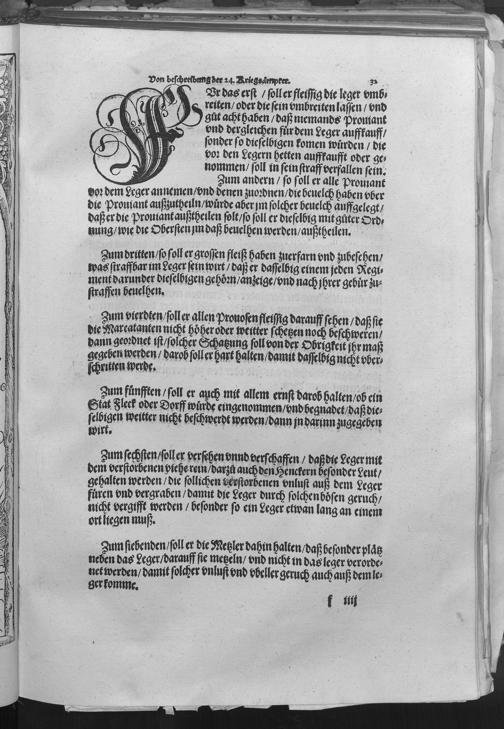 Von beschreibung der 24. Kriegsämpter. 32
FVr das erst / soll er fleissig die leger vmb⸗
reiten / oder die sein vmbreiten lassen / vnd
güt acht haben / daß niemands Prouiant
vnd dergleichen für dem Leger auffkauff /
sonder so dieselbigen komen würden / die
vor den Legern hetten auffkaufft oder ge⸗
nommen / soll in sein straff verfallen sein.
Zum andern / so soll er alle Prouiant
vor dem Leger annemen / vnd denen zuordnen / die beuelch haben vber
die Prouiant außzutheiln / würde aber jm solcher beuelch auffgelegt /
daß er die Prouiant außtheilen solt / so soll er dieselbig mit güter Ord⸗
nung / wie die Obersten jm daß beuelhen werden / außtheilen.
Zum dritten / so soll er grossen fleiß haben zuerfarn vnd zubesehen /
was straffbar im Leger sein wirt / daß er dasselbig einem jeden Regi⸗
ment darunder dieselbigen gehörn / anzeige / vnd nach jhrer gebür zu⸗
straffen beuelhen.
Zum vierdten / soll er allen Prouosen fleissig darauff sehen / daß sie
die Marcatanten nicht höher oder weitter schetzen noch beschweren /
dann geordnet ist / solcher Schatzung soll von der Obrigkeit jhr maß
gegeben werden / darob soll er hart halten / damit dasselbig nicht vber⸗
schritten werde.
Zum fünfften / soll er auch mit allem ernst darob halten / ob ein
Stat Fleck oder Dorff würde eingenommen / vnd begnadet / daß die⸗
selbigen weitter nicht beschwerdt werden / dann jn darinn zugegeben
wirt.
Zum sechsten / soll er versehen vnnd verschaffen / daß die Leger mit
dem verstorbenen viehe rein / darzü auch den Henckern besonder Leut /
gehalten werden / die sollichen verstorbenen vnlust auß dem Leger
füren vnd vergraben / damit die Leger durch solchen bösen geruch /
nicht vergifft werden / besonder so ein Leger etwan lang an einem
ort liegen muß.
Zum siebenden / soll er die Metzler dahin halten / daß besonder plätz
neben das Leger / darauff sie metzeln / vnd nicht in das leger verorde⸗
net werden / damit solcher vnlust vnd vbeller geruch auch auß dem le⸗
ger komme.
f iiij